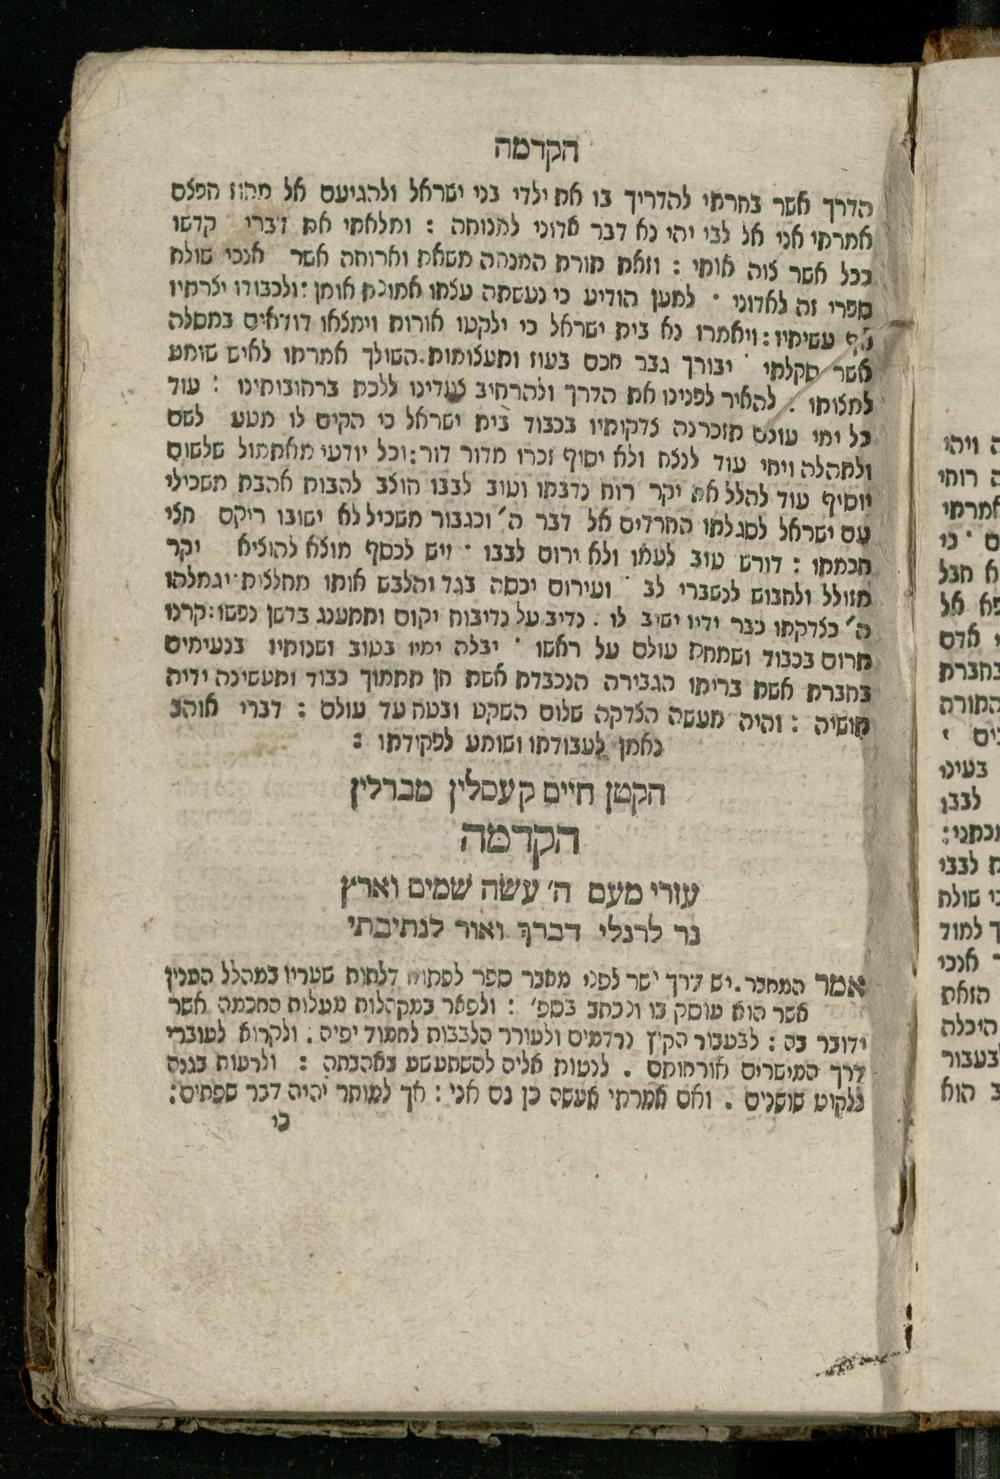 הקדמה
הדרך אשר בחרתי להדריך בו את ילדי בני ישראל ולהגיעם אל מחוז חפצם
אמרתי אני אל לבי יהי נא דבר אדוני למנוחה : ומלאתי את דברי קדשו
ככל אשר צוה אותי : וזאת תורת המנחה משאת וארוחה אשר אנכי שולח
ספרי זה לאדוני · למען הודיע כי נעשתה עצתו אמונת אומן : ולכבודו יצרתיו
אף עשיתיו : ויאמרו נא בית ישראל כי ילקטו אורות וימצאו דודאים במסלה
אשר סקלתי · יבורך גבר חכם בעוז ותעצומות . השולך אמרתו לאיש שומע
למצותו . להאיר לפנינו את הדרך ולהרחיב צעדינו ללכת ברחובותינו : עוד
כל ימי עולם תזכרנה צדקותיו בכבוד בית ישראל כי הקים לו מטע לשם
ולתהלה ויחי עוד לנצח ולא יסוף זכרו מדור דור : וכל יודעי מאתמול שלשום
יוסיף עוד להלל את יקר רוח נדבתו וטוב לבבו הולב להבות אהבת משכילי
עם ישראל לסגלתו החרדים אל דבר ה׳ וכגבור משכיל לא ישובו ריקם חצי
חכמתו : דורש טוב לעמו ולא ירום לבבו · ויש לכסף מוצא להוציא יקר
מזולל ולחבוש לנשברי לב · ועירום יכסה בגד והלבש אותו מחלצות · יגמלהו
ה׳ כצדקתו כבר ידיו ישיב לו . נדיב על נדיבות יקום ותתענג בדשן נפשו : קרנו
תרום בכבוד ושמחת עולם על ראשו · יבלה ימיו בטוב ושנותיו בנעימים
בחברת אשת בריתו הגבירה הנכבדת אשת חן תתמוך כבוד ותעשינה ידיה
תושיה : והיה מעשה הצדקה שלום השקט ובטח עד עולם : דברי אוהב
נאמן לעבודתו ושומע לפקודתו :
הקטן חיים קעסלין מברלין
הקדמה
עזרי מעם ה׳ עשה שמים וארץ
נר לרגלי דברך ואור לנתיבתי
אמר המחבר . יש דרך ישר לפני מחבר ספר לפתוח דלתות שעריו במהלל הענין
אשר הוא עוסק בו ונכתב בספ׳ : ולפאר במקהלות מעלות החכמה אשר
ידובר בה : לבעבור הקיץ נרדמים ולעורר הלבבות לחמוד יפיה . ולקרוא לעוברי
דרך המישרים אורחותם . לנטות אליה להשתעשע באהבתה : ולרעות בגנה
ללקוט שושנים . ואם אמרתי אעשה כן גם אני : אך למותר יהיה דבר שפתים :
כי